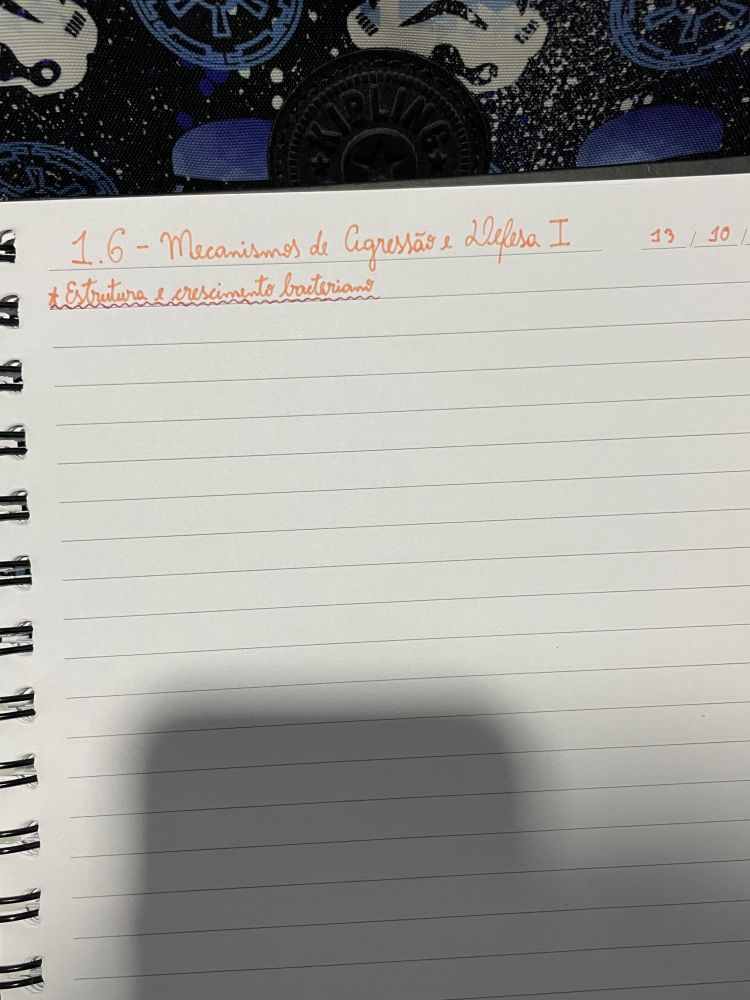 KIPLING
1.6 - Mecanismos de Agressão e Defesa I 13 / 10 /
* Estrutura e crescimento bacteriano